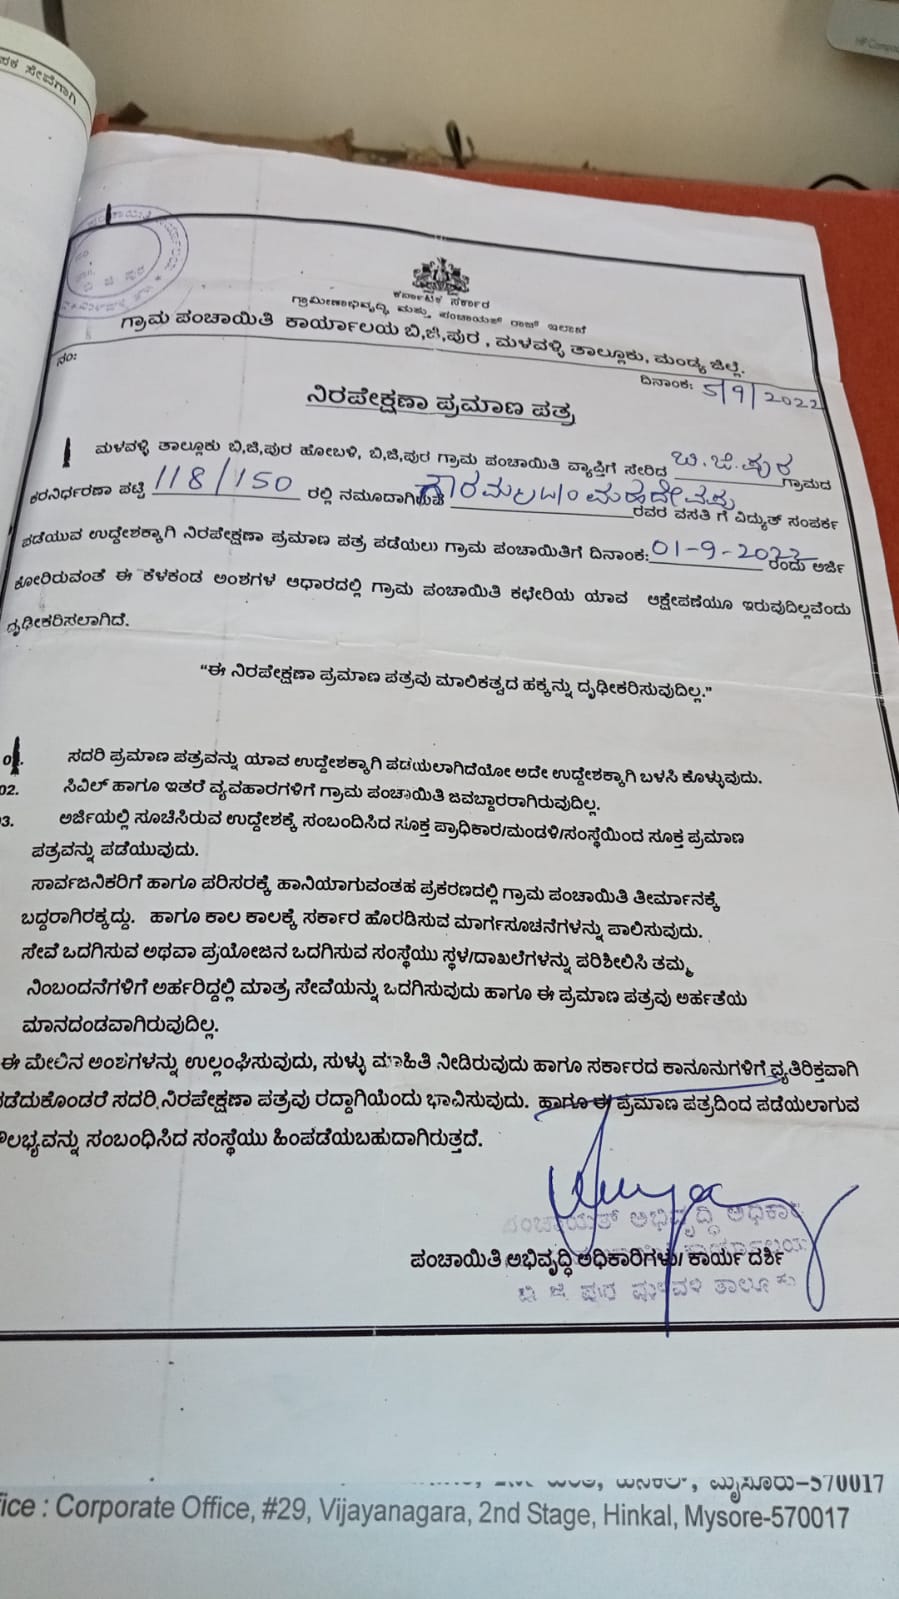 ಪಕ ಸೇವೆಗಾಗಿ
HP Compaq
ಬಿ ಜಿ ಪುರ
ಕರ್ನಾಟಕ ಸರ್ಕಾರ
ಗ್ರಾಮೀಣಾಭಿವೃದ್ಧಿ ಮತ್ತು ಪಂಚಾಯತ್ ರಾಜ್ ಇಲಾಖೆ
ಗ್ರಾಮ ಪಂಚಾಯಿತಿ ಕಾರ್ಯಾಲಯ ಬಿ,ಜಿ,ಪುರ , ಮಳವಳ್ಳಿ ತಾಲ್ಲೂಕು, ಮಂಡ್ಯ ಜಿಲ್ಲೆ.
ನಂ:
ದಿನಾಂಕ: 5/9/2022
ನಿರಪೇಕ್ಷಣಾ ಪ್ರಮಾಣ ಪತ್ರ
ಮಳವಳ್ಳಿ ತಾಲ್ಲೂಕು ಬಿ,ಜಿ,ಪುರ ಹೋಬಳಿ, ಬಿ,ಜಿ,ಪುರ ಗ್ರಾಮ ಪಂಚಾಯಿತಿ ವ್ಯಾಪ್ತಿಗೆ ಸೇರಿದ ಬಿ.ಜಿ.ಪುರ ಗ್ರಾಮದ
ಕರನಿರ್ಧರಣಾ ಪಟ್ಟಿ 118/150 ರಲ್ಲಿ ನಮೂದಾಗಿರುವ ಗೌರಮ್ಮ ಮಹದೇವಪ್ಪ ರವರ ವಸತಿ ಗೆ ವಿದ್ಯುತ್ ಸಂಪರ್ಕ
ಪಡೆಯುವ ಉದ್ದೇಶಕ್ಕಾಗಿ ನಿರಪೇಕ್ಷಣಾ ಪ್ರಮಾಣ ಪತ್ರ ಪಡೆಯಲು ಗ್ರಾಮ ಪಂಚಾಯಿತಿಗೆ ದಿನಾಂಕ: 01-9-2022 ರಂದು ಅರ್ಜಿ
ಕೋರಿರುವಂತೆ ಈ ಕೆಳಕಂಡ ಅಂಶಗಳ ಆಧಾರದಲ್ಲಿ ಗ್ರಾಮ ಪಂಚಾಯಿತಿ ಕಛೇರಿಯ ಯಾವ ಆಕ್ಷೇಪಣೆಯೂ ಇರುವುದಿಲ್ಲವೆಂದು
ದೃಢೀಕರಿಸಲಾಗಿದೆ.
“ಈ ನಿರಪೇಕ್ಷಣಾ ಪ್ರಮಾಣ ಪತ್ರವು ಮಾಲಿಕತ್ವದ ಹಕ್ಕನ್ನು ದೃಢೀಕರಿಸುವುದಿಲ್ಲ.”
01. ಸದರಿ ಪ್ರಮಾಣ ಪತ್ರವನ್ನು ಯಾವ ಉದ್ದೇಶಕ್ಕಾಗಿ ಪಡೆಯಲಾಗಿದೆಯೋ ಅದೇ ಉದ್ದೇಶಕ್ಕಾಗಿ ಬಳಸಿ ಕೊಳ್ಳುವುದು.
02. ಸಿವಿಲ್ ಹಾಗೂ ಇತರೆ ವ್ಯವಹಾರಗಳಿಗೆ ಗ್ರಾಮ ಪಂಚಾಯಿತಿ ಜವಬ್ದಾರರಾಗಿರುವುದಿಲ್ಲ.
3. ಅರ್ಜಿಯಲ್ಲಿ ಸೂಚಿಸಿರುವ ಉದ್ದೇಶಕ್ಕೆ ಸಂಬಂದಿಸಿದ ಸೂಕ್ತ ಪ್ರಾಧಿಕಾರ/ಮಂಡಳಿ/ಸಂಸ್ಥೆಯಿಂದ ಸೂಕ್ತ ಪ್ರಮಾಣ
ಪತ್ರವನ್ನು ಪಡೆಯುವುದು.
ಸಾರ್ವಜನಿಕರಿಗೆ ಹಾಗೂ ಪರಿಸರಕ್ಕೆ ಹಾನಿಯಾಗುವಂತಹ ಪ್ರಕರಣದಲ್ಲಿ ಗ್ರಾಮ ಪಂಚಾಯಿತಿ ತೀರ್ಮಾನಕ್ಕೆ
ಬದ್ದರಾಗಿರಕ್ಕದ್ದು. ಹಾಗೂ ಕಾಲ ಕಾಲಕ್ಕೆ ಸರ್ಕಾರ ಹೊರಡಿಸುವ ಮಾರ್ಗಸೂಚನೆಗಳನ್ನು ಪಾಲಿಸುವುದು.
ಸೇವೆ ಒದಗಿಸುವ ಅಥವಾ ಪ್ರಯೋಜನ ಒದಗಿಸುವ ಸಂಸ್ಥೆಯು ಸ್ಥಳ/ದಾಖಲೆಗಳನ್ನು ಪರಿಶೀಲಿಸಿ ತಮ್ಮ
ನಿಂಬಂದನೆಗಳಿಗೆ ಅರ್ಹರಿದ್ದಲ್ಲಿ ಮಾತ್ರ ಸೇವೆಯನ್ನು ಒದಗಿಸುವುದು ಹಾಗೂ ಈ ಪ್ರಮಾಣ ಪತ್ರವು ಅರ್ಹತೆಯ
ಮಾನದಂಡವಾಗಿರುವುದಿಲ್ಲ.
ಈ ಮೇಲಿನ ಅಂಶಗಳನ್ನು ಉಲ್ಲಂಘಿಸುವುದು, ಸುಳ್ಳು ಮಾಹಿತಿ ನೀಡಿರುವುದು ಹಾಗೂ ಸರ್ಕಾರದ ಕಾನೂನುಗಳಿಗೆ ವ್ಯತಿರಿಕ್ತವಾಗಿ
ಪಡೆದುಕೊಂಡರೆ ಸದರಿ ನಿರಪೇಕ್ಷಣಾ ಪತ್ರವು ರದ್ದಾಗಿಯೆಂದು ಭಾವಿಸುವುದು. ಹಾಗೂ ಈ ಪ್ರಮಾಣ ಪತ್ರದಿಂದ ಪಡೆಯಲಾಗುವ
ಲಭ್ಯವನ್ನು ಸಂಬಂಧಿಸಿದ ಸಂಸ್ಥೆಯು ಹಿಂಪಡೆಯಬಹುದಾಗಿರುತ್ತದೆ.
ಪಂಚಾಯತ್ ಅಭಿವೃದ್ಧಿ ಅಧಿಕಾರಿ
ಪಂಚಾಯಿತಿ ಅಭಿವೃದ್ಧಿ ಅಧಿಕಾರಿಗಳು/ ಕಾರ್ಯದರ್ಶಿ
ಬಿ ಜಿ ಪುರ ಮಳವಳ್ಳಿ ತಾಲ್ಲೂಕು
ಹಿನಕಲ್, ಮೈಸೂರು-570017
ice : Corporate Office, #29, Vijayanagara, 2nd Stage, Hinkal, Mysore-570017